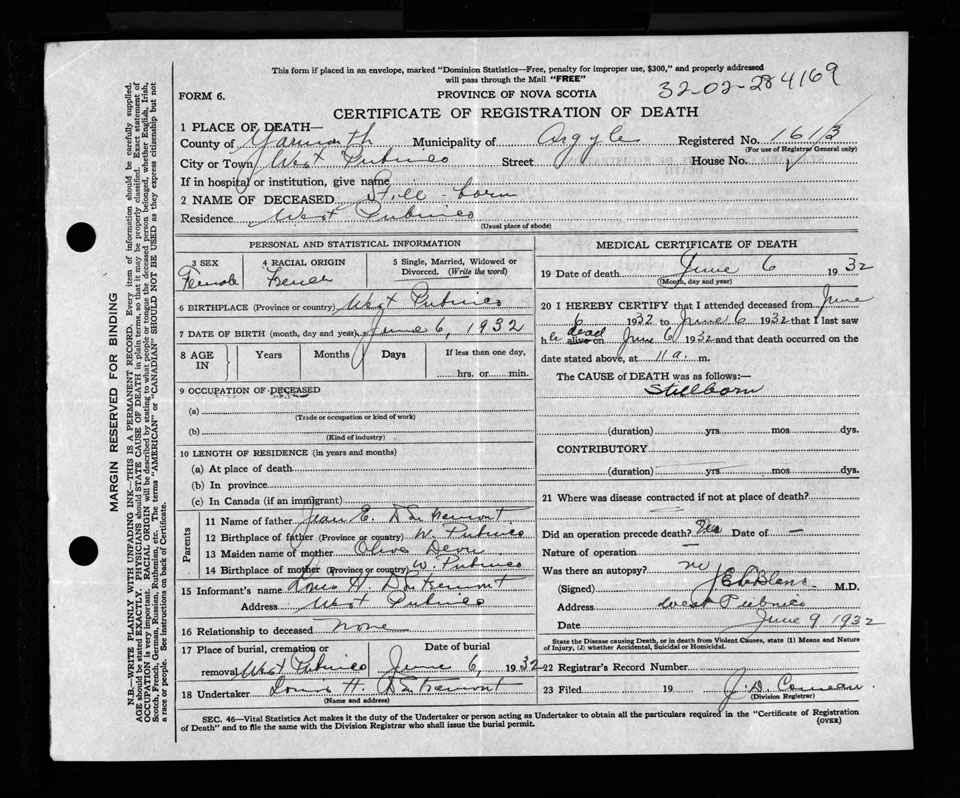 This form if placed in an envelope, marked "Dominion Statistics—Free, penalty for improper use, $300," and properly addressed
will pass through the Mail "FREE"
32-02-284169
FORM 6.
PROVINCE OF NOVA SCOTIA
CERTIFICATE OF REGISTRATION OF DEATH
1 PLACE OF DEATH—
County of Yarmouth Municipality of Argyle Registered No. 1613
(For use of Registrar General only)
City or Town West Pubnico Street House No.
If in hospital or institution, give name
2 NAME OF DECEASED Still-born
Residence West Pubnico
(Usual place of abode)
PERSONAL AND STATISTICAL INFORMATION
3 SEX
Female
4 RACIAL ORIGIN
French
5 Single, Married, Widowed or
Divorced. (Write the word)
6 BIRTHPLACE (Province or country) West Pubnico
7 DATE OF BIRTH (month, day and year) June 6, 1932
8 AGE IN
Years Months Days
If less than one day,
hrs. or min.
9 OCCUPATION OF DECEASED
(a)
(Trade or occupation or kind of work)
(b)
(Kind of industry)
10 LENGTH OF RESIDENCE (in years and months)
(a) At place of death
(b) In province
(c) In Canada (if an immigrant)
Parents
11 Name of father Jean E. D'Entremont
12 Birthplace of father (Province or country) W. Pubnico
13 Maiden name of mother Olive
14 Birthplace of mother (Province or country) W. Pubnico
15 Informant's name Louis H. D'Entremont
Address West Pubnico
16 Relationship to deceased none
17 Place of burial, cremation or Date of burial
removal West Pubnico June 6, 1932
18 Undertaker Louis H. D'Entremont
(Name and address)
MEDICAL CERTIFICATE OF DEATH
19 Date of death June 6 1932
(Month, day and year)
20 I HEREBY CERTIFY that I attended deceased from June
6 1932 to June 6 1932 that I last saw
h er dead alive on June 6 1932 and that death occurred on the
date stated above, at 11 a. m.
The CAUSE of DEATH was as follows:—
Stillborn
(duration) yrs mos dys.
CONTRIBUTORY
(duration) yrs mos dys.
21 Where was disease contracted if not at place of death?
Did an operation precede death? Date of —
Nature of operation —
Was there an autopsy? no
(Signed) M.D.
Address West Pubnico
Date June 9 1932
State the Disease causing Death, or in death from Violent Causes, state (1) Means and Nature
of Injury, (2) whether Accidental, Suicidal or Homicidal.
22 Registrar's Record Number
23 Filed 19 J. D. Comeau
(Division Registrar)
SEC. 46—Vital Statistics Act makes it the duty of the Undertaker or person acting as Undertaker to obtain all the particulars required in the "Certificate of Registration
of Death" and to file the same with the Division Registrar who shall issue the burial permit.
(OVER)
MARGIN RESERVED FOR BINDING
N.B.—WRITE PLAINLY, WITH UNFADING INK—THIS IS A PERMANENT RECORD. Every item of information should be carefully supplied.
AGE should be stated EXACTLY. PHYSICIANS should STATE CAUSE OF DEATH in plain terms, so that it may be properly classified. Exact statement of
OCCUPATION is very important. RACIAL ORIGIN will be described by stating to what people or tongue the deceased person belonged, whether English, Irish,
Scotch, French, German, Russian, Ruthenian, etc. The terms "AMERICAN" or "CANADIAN" SHOULD NOT BE USED as they express citizenship but not
a race or people. See instructions on back of Certificate.